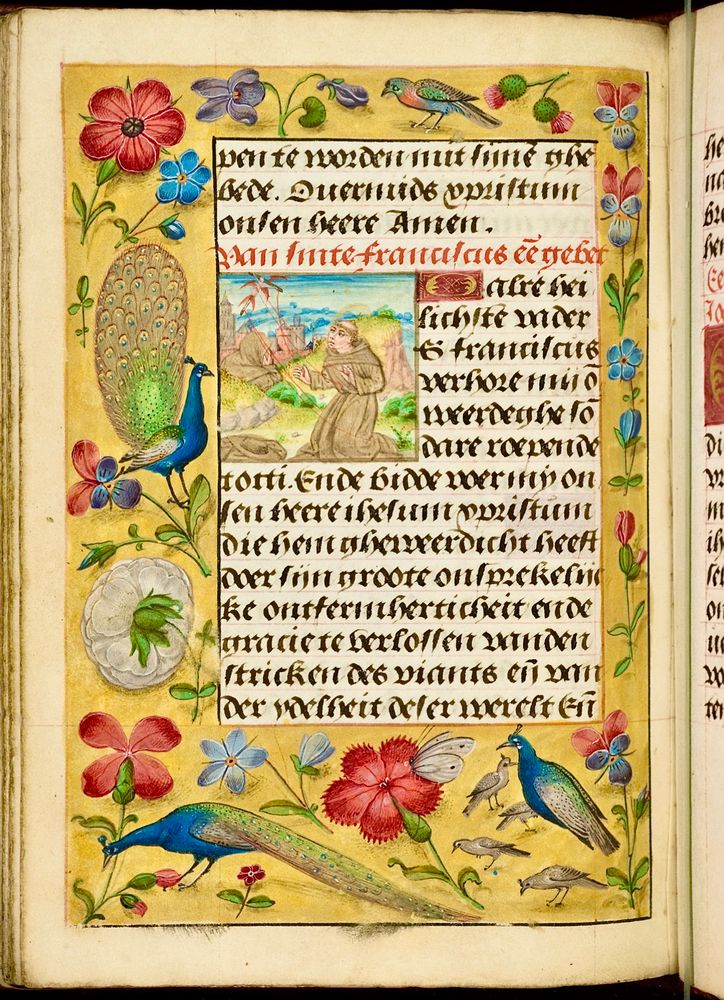 pen te worden mit sinē ghe
bede. Ouermids xpristum
onsen heere Amen.
Van sinte franciscus eē gebet
alre hei
lichste vader
S franciscus
verhore mij ō
weerdeghe sō
dare roepende
totti. Ende bidde wer my on
sen heere ihesum xpristum
die hem gheweerdicht heeft
doer sijn groote onsprekelijc
ke ontfermherticheit ende
gracie te verlossen vanden
stricken des viants eñ van
der ydelheit deser werelt Eñ